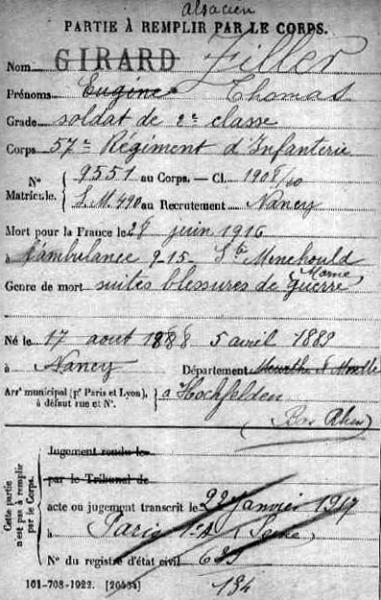 alsacien
PARTIE À REMPLIR PAR LE CORPS.
Nom GIRARD Ziller
Prénoms Eugène Thomas
Grade soldat de 2e classe
Corps 57e Régiment d'Infanterie
No 9551 au Corps. — Cl. 1908/10
Matricule. L.M. 490 au Recrutement Nancy
Mort pour la France le 28 juin 1916
à l'ambulance 9-15 Ste Menehould
Marne
Genre de mort suites blessures de Guerre
Né le 17 aout 1888 5 avril 1888
à Nancy Département Meurthe & Moselle
Arrt municipal (pr Paris et Lyon), à défaut rue et No. à Hochfelden
(Bas Rhin)
Cette partie n'est pas à remplir par le Corps.
Jugement rendu le
par le Tribunal de
acte ou jugement transcrit le 22 Janvier 1917
à Paris 1er (Seine)
No du registre d'état civil 685
184
101-708-1922. [26434]